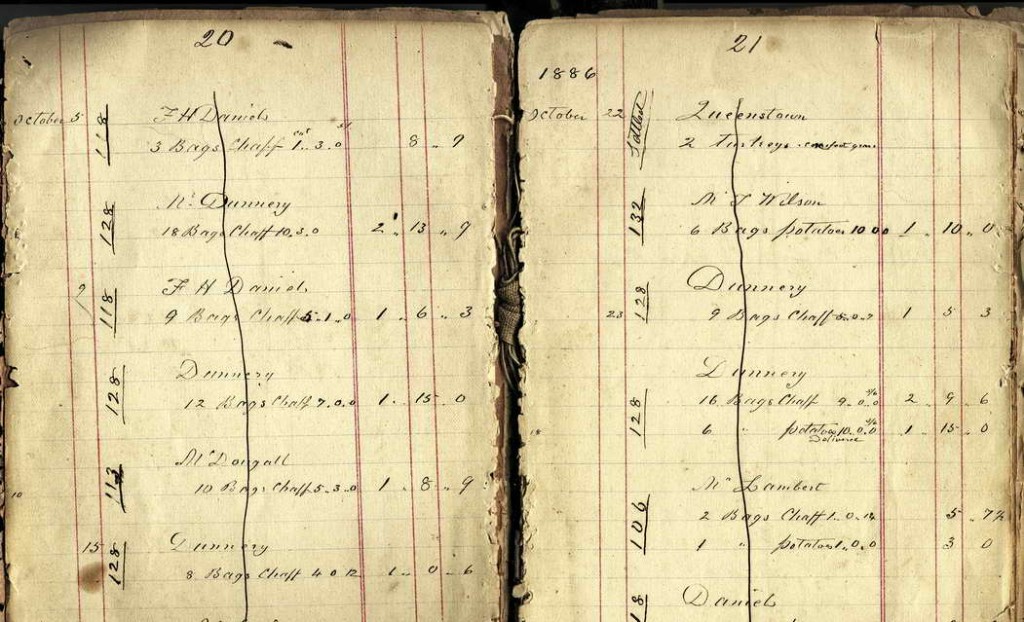 20
October 5
118
F H Daniels
3 Bags Chaff 1..3.0 8 .. 9
128
Mr Dunnery
18 Bags Chaff 10.3.0 2 .. 13 .. 9
9
118
F H Daniels
9 Bags Chaff 5.1.0 1 .. 6 .. 3
128
Dunnery
12 Bags Chaff 7.0.0 1 .. 15 .. 0
113
McDougall
10
10 Bags Chaff 5.3.0 1 .. 8 .. 9
15
128
Dunnery
8 Bags Chaff 4 0 12 1 .. 0 .. 6
21
1886
October 22
Settled
Queenstown
2
132
Mr T Wilson
6 Bags potatoes 10 0 0 1 .. 10 .. 0
128
Dunnery
23
9 Bags Chaff 1 5 3
128
Dunnery
16 Bags Chaff 9..0..0 2 .. 9 .. 6
6 " potatoes 10.0.0 1 .. 15 .. 0
106
Mr Lambert
2 Bags Chaff 1.0.14 5 .. 7½
1 " potatoes 1.0.0 3 0
18
Daniels